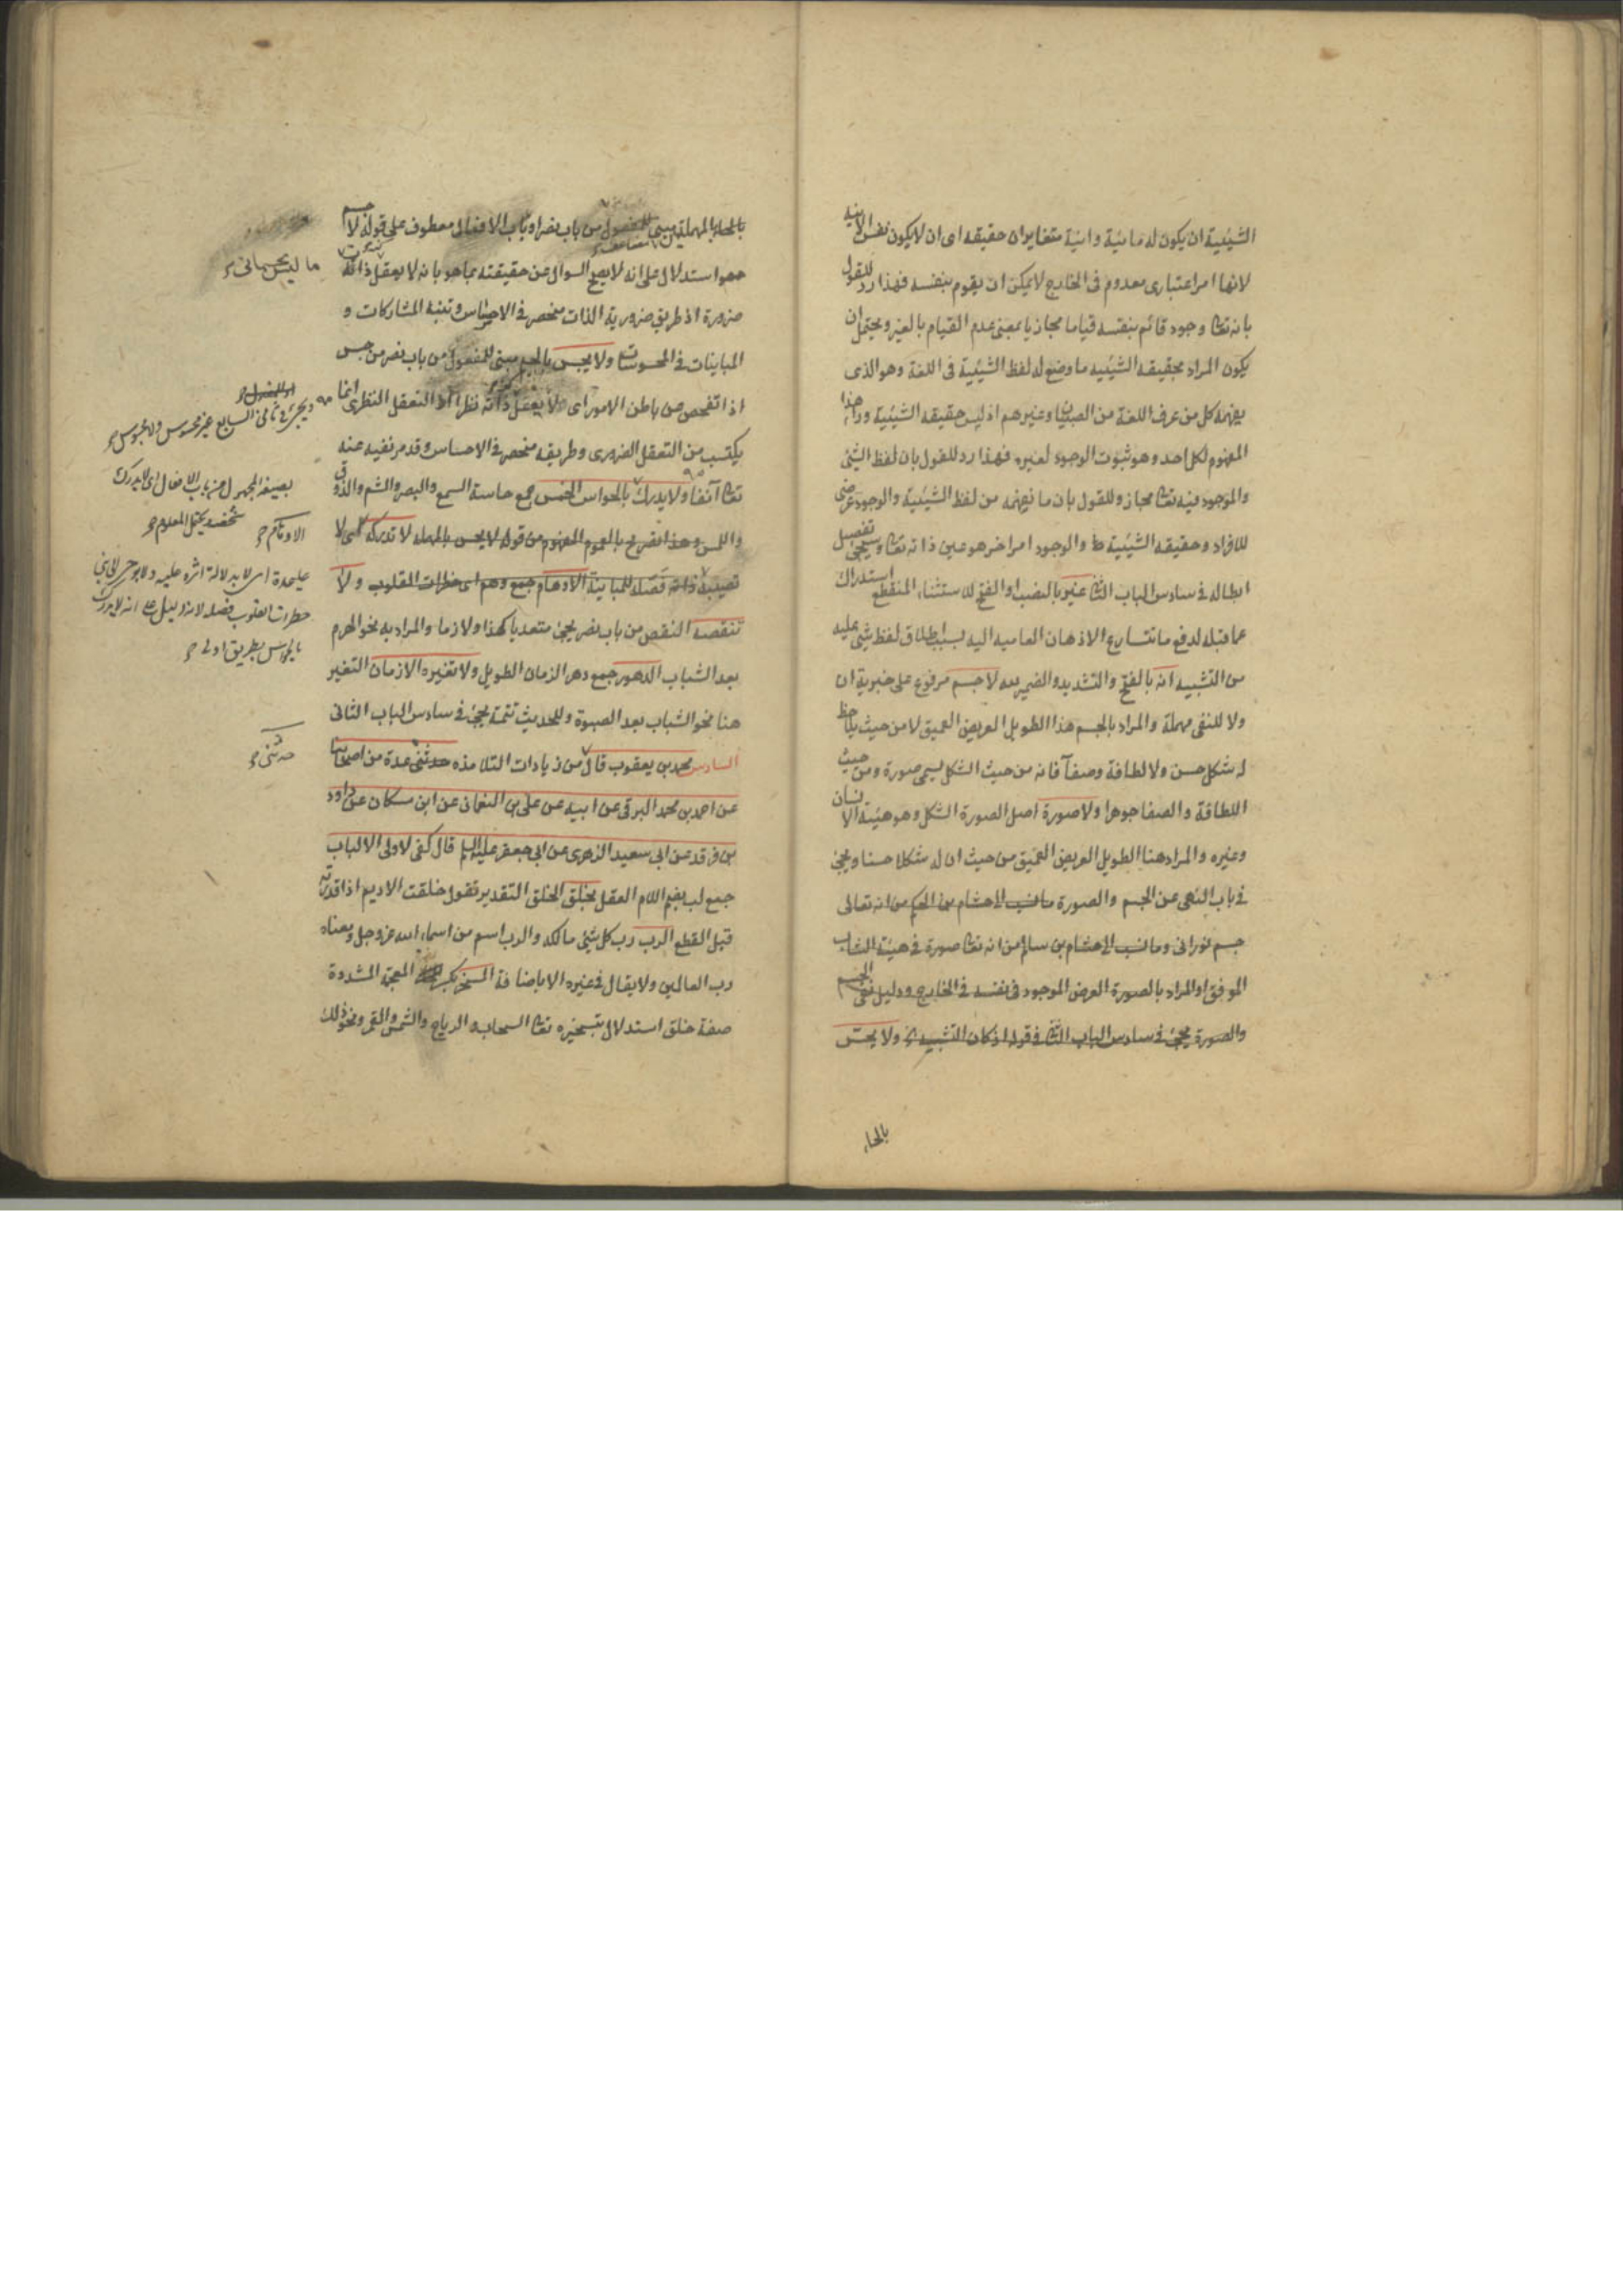 الشيئية ان يكون له مائية وانية متغايران حقيقه اى ان لا يكون نفس الانية
لانها امر اعتبارى معدوم فى الخارج لا يمكن ان يقوم بنفسه فهذا رد للقول
بانه تعا وجود قائم بنفسه قياما مجازيا بمعنى عدم القيام بالغير ويحتمل ان
يكون المراد بحقيقه الشيئيه ما وضع له لفظ الشيئية فى اللغة وهو الذى
يفهمه كل من عرف اللغة من الصبيان وغيرهم اذ ليس حقيقه الشيئية وراء هذا
المفهوم لكل احد وهو ثبوت الوجود لغيره فهذا رد للقول بان لفظ الشئ
والموجود فيه تعا مجاز وللقول بان ما نفهمه من لفظ الشيئية والوجود عرضى
للافراد وحقيقه الشيئية والوجود امر اخر هو عين ذاته تعا وسيجئ تفصيل
ابطاله فى سادس الباب الثانى غير بالنصب او الفتح للاستثناء المنقطع استدراك
عما قبله لدفع ما تتسارع الاذهان العاميه اليه بسبب اطلاق لفظ شئ عليه
من التشبيه انه بالفتح والتشديد والضمير لله لا جسم مرفوع على خبرية ان
ولا للنفى مهملة والمراد بالجسم هذا الطويل العريض العميق لا من حيث يلاحظ
له شكل حسن ولا لطافة وصفآ فانه من حيث الشكل يسمى صورة ومن حيث
اللطافة والصفا جوهرا ولا صورة اصل الصورة الشكل وهو هيئة الانسان
وغيره والمراد هنا الطويل العريض العميق من حيث ان له شكلا حسنا ويجئ
فى باب النهى عن الجسم والصورة ما نسب الى هشام بن الحكم من انه تعالى
جسم نورانى وما نسب الى هشام بن سالم من انه تعا صورة فى هيئة الشاب
الموفق او المراد بالصورة العرض الموجود فى نفسه فى الخارج ودليل نفى الجسم
والصورة يجئ فى سادس الباب الثانى فى قوله اذ كان التشبيه ولا يحس
بالحاء
بالحاء المهملة مبنى للمفعول من باب نصر او باب الافعال معطوف على قوله لا جسم
هو استدلال على انه لا يصح السوال عن حقيقته بما هو بانه لا يعقل ذاته
ضرورة اذ طريق ضرورية الذات منحصر فى الاحساس وتنبه المشاركات و
المباينات فى المحسوسات ولا يجس بالجيم مبنى للمفعول من باب نصر من جس
اذا تفحص عن باطن الامور اى لا يعقل ذاته نظرا اذ التعقل النظرى انما
يكتسب من التعقل الضرورى وطريقه منحصر فى الاحساس وقد مر نفيه عنه
تعا آنفا ولا يدرك بالحواس الخمس جمع حاسة السمع والبصر والشم والذوق
واللمس وهذا تصريح بالعموم المفهوم من قوله لا يحس بالمهمله لا تدركه اى لا
تصيب ذاته فصله للمباينة الاوهام جمع وهم اى خطرات القلوب ولا
تنقصه النقص من باب نصر يجئ متعديا كهذا ولازما والمراد به نحو الهرم
بعد الشباب الدهور جمع دهر الزمان الطويل ولا تغيره الازمان التغير
هنا نحو الشباب بعد الصبوة وللحديث تتمة يجئ فى سادس الباب الثانى
السادس محمد بن يعقوب قال من زيادات التلامذه حدثنى عدة من اصحابنا
عن احمد بن محمد البرقى عن ابيه عن على بن النعمان عن ابن مسكان عن داود
بن فرقد عن ابى سعيد الزهرى عن ابى جعفر عليه السلم قال كفى لاولى الالباب
جمع لب بضم اللام العقل بخلق الخلق التقدير تقول خلقت الاديم اذا قدرته
قبل القطع الرب رب كل شئ مالكه والرب اسم من اسماء الله عز وجل ومعناه
رب العالمين ولا يقال فى غيره الا باضافة المسخر بكسر المعجمة المشددة
صفة خلق استدلال بتسخيره تعا السحاب والرياح والشمس والقمر ونحو ذلك
ما ليس بجسمانى
ويجئ فى ثانى السابع غير محسوس ولا مجسوس
بصيغة المجهول من باب الافعال اى لا يدرك
شخصه يحتمل المعلوم
عليحدة اى لا بدلالة اثره عليه
خطرات القلوب فصله لانه دليل على انه لا يدرك
بالحواس بطريق اولى
حدثنى